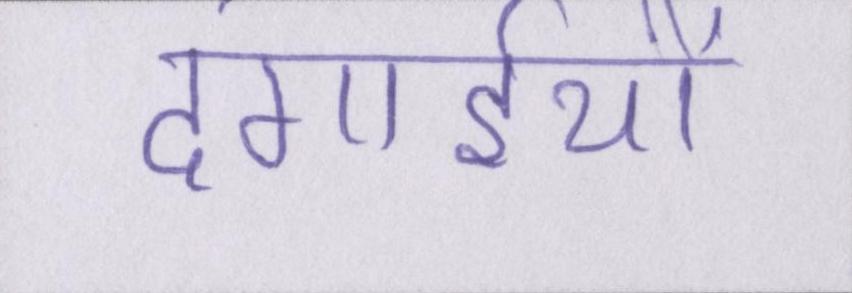 दंगाईयों